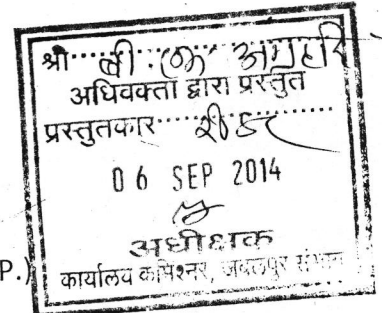 श्री बी. के. अग्रहरि
अधिवक्ता द्वारा प्रस्तुत
प्रस्तुतकार रीडर
06 SEP 2014
अधीक्षक
P.)
कार्यालय कमिश्नर, जबलपुर संभाग